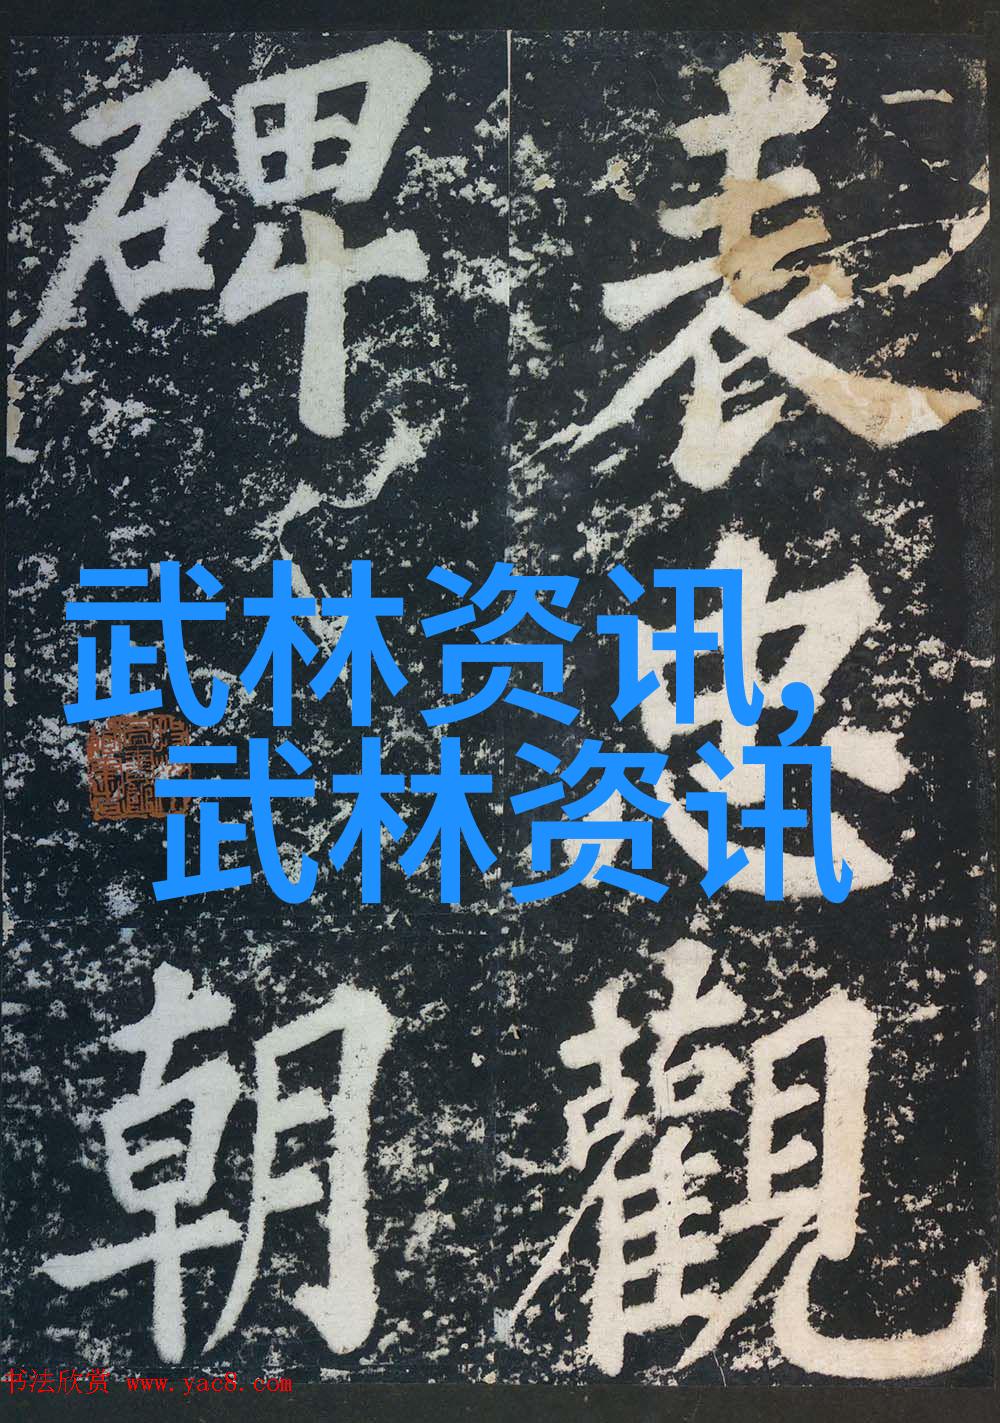 表忠觀
碑
朝
武林资讯,
武林资讯
书法欣赏 www.yac8.com